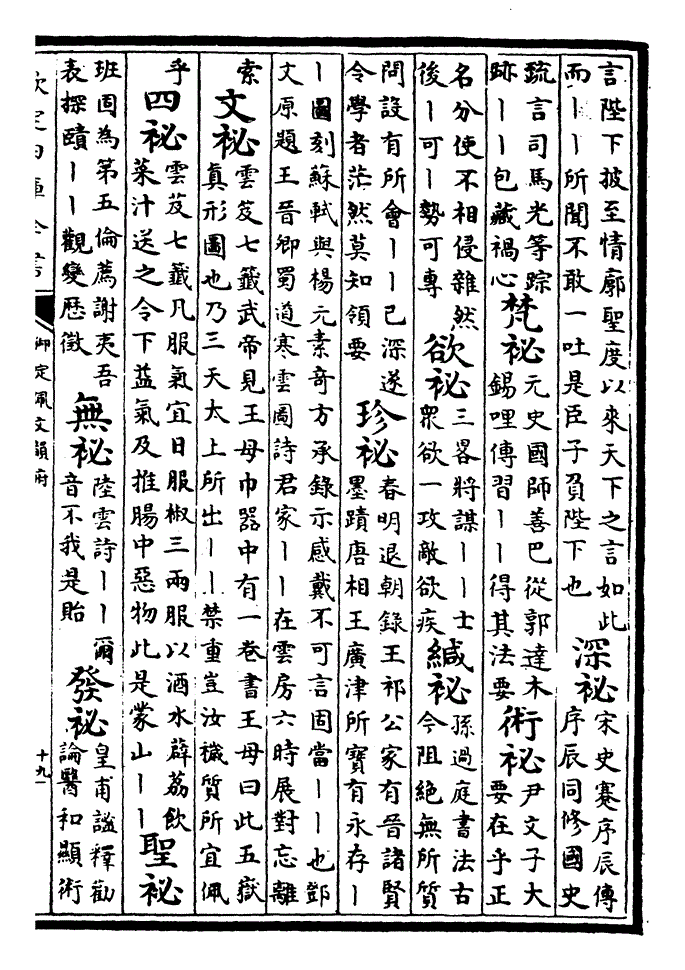 言陛下披至情廓聖度以來天下之言如此
而丨丨所聞不敢一吐是臣子負陛下也
深祕
宋史蹇序辰傳
序辰同修國史
疏言司馬光等踪
跡丨丨包藏禍心
梵祕
元史國師善巴從郭達木
錫哩傳習丨丨得其法要
術祕
尹文子大
要在乎正
名分使不相侵雜然
後丨可丨勢可專
欲祕
三畧將謀丨丨士
衆欲一攻敵欲疾
緘祕
孫過庭書法古
今阻絕無所質
問設有所會丨丨已深遂
令學者茫然莫知領要
珍祕
春明退朝錄王祁公家有晉諸賢
墨蹟唐相王廣津所寶有永存丨
丨圖刻蘇軾與楊元素奇方承錄示感戴不可言固當丨丨也鄧
文原題王晉卿蜀道寒雲圖詩君家丨丨在雲房六時展對忘離
索
文祕
雲笈七籤武帝見王母巾器中有一卷書王母曰此五嶽
真形圖也乃三天太上所出丨丨禁重豈汝穢質所宜佩
乎
四祕
雲芨七籤凡服氣宜日服椒三兩服以酒水薜荔飲
菜汁送之令下益氣及推腸中惡物此是蒙山丨丨
聖祕
班固為第五倫薦謝夷吾
表探賾丨丨觀變歷徵
無祕
陸雲詩丨丨爾
音不我是貽
發祕
皇甫謐釋勸
論醫和顯術
欽定四庫全書
御定佩文韻府
十九